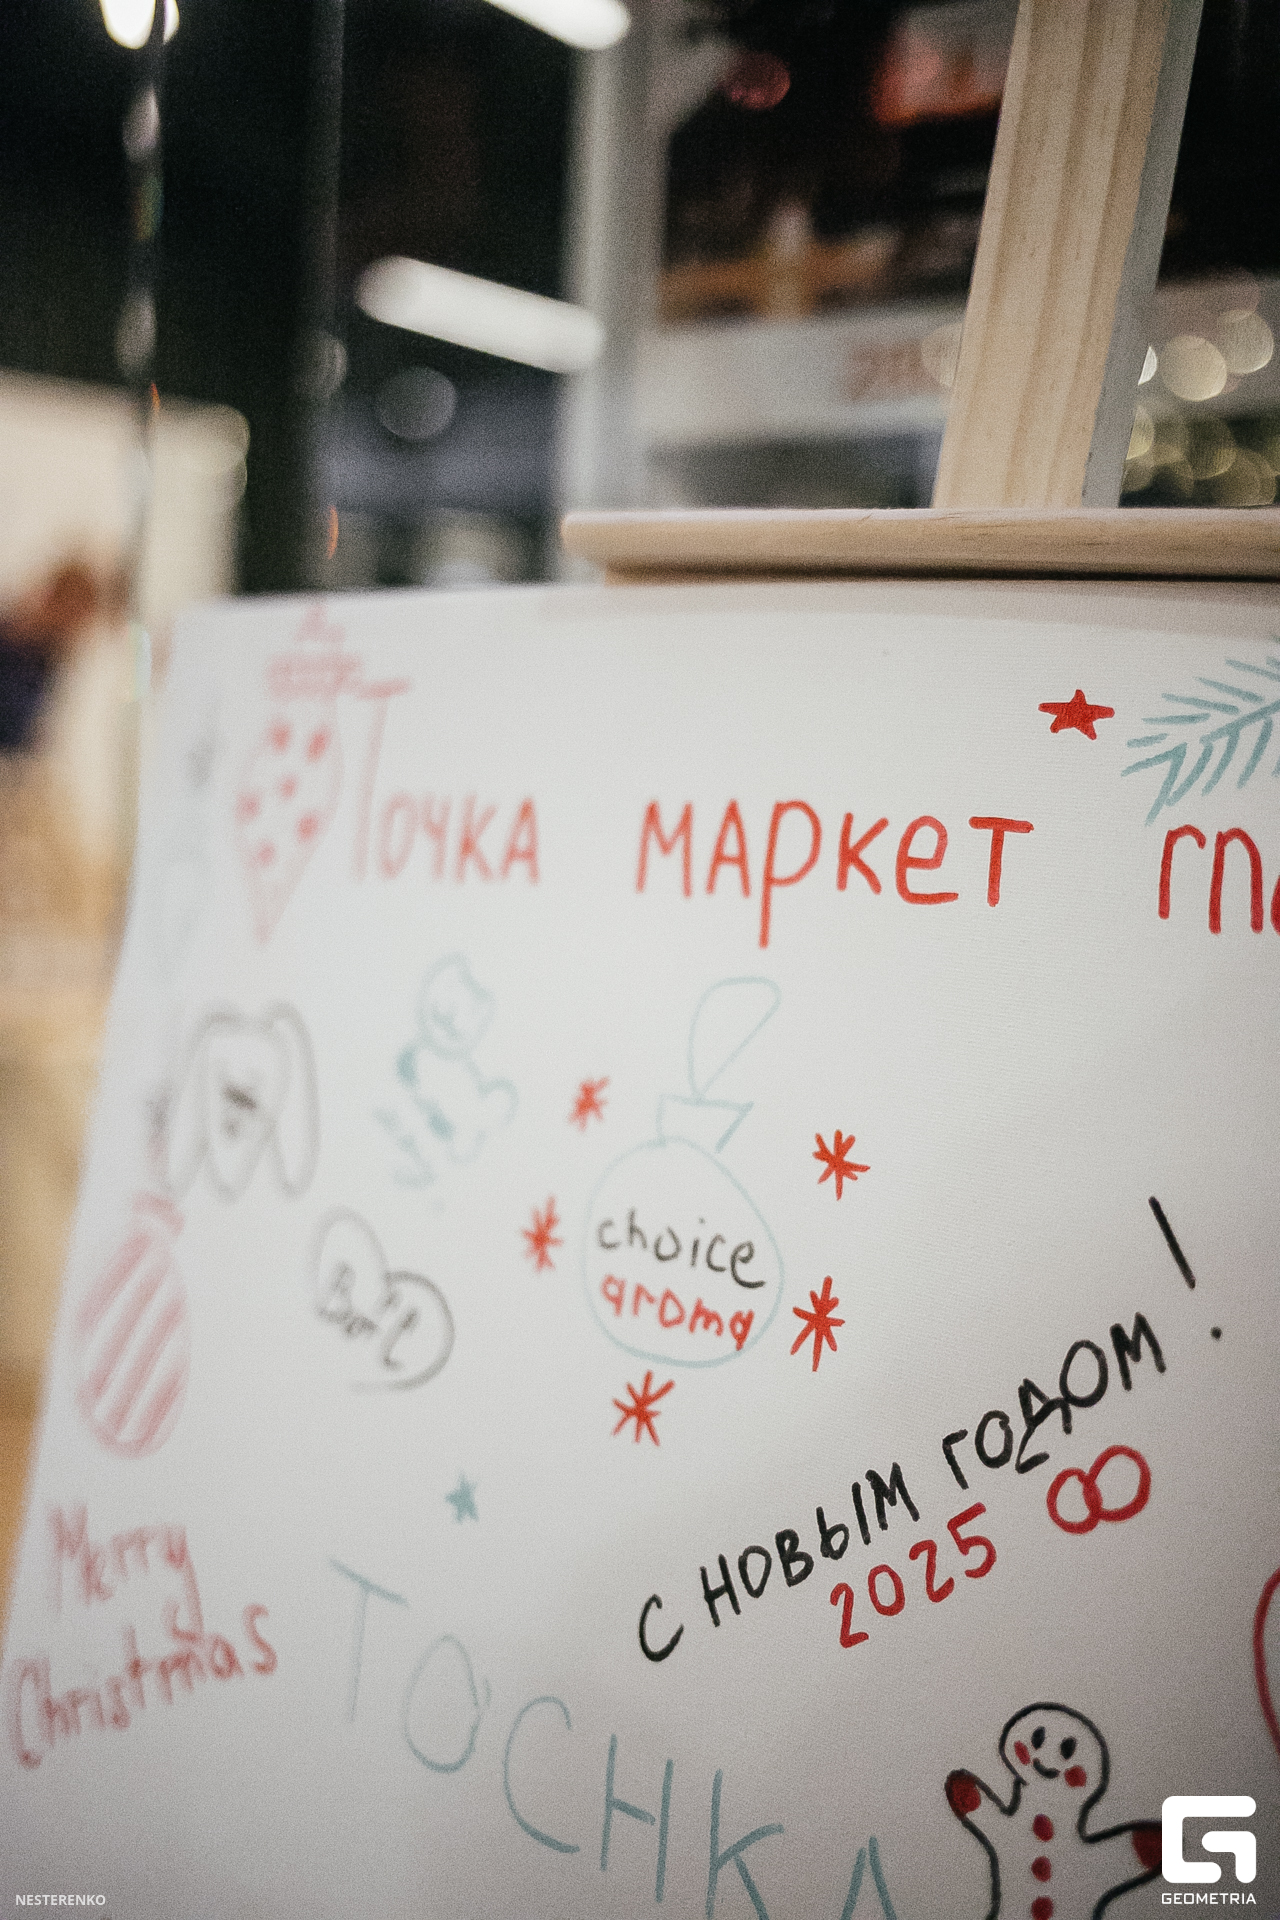 Точка маркет
choice
aroma
с новым годом!
2025
Merry
Christmas
TOCHKA
NESTERENKO
GEOMETRIA